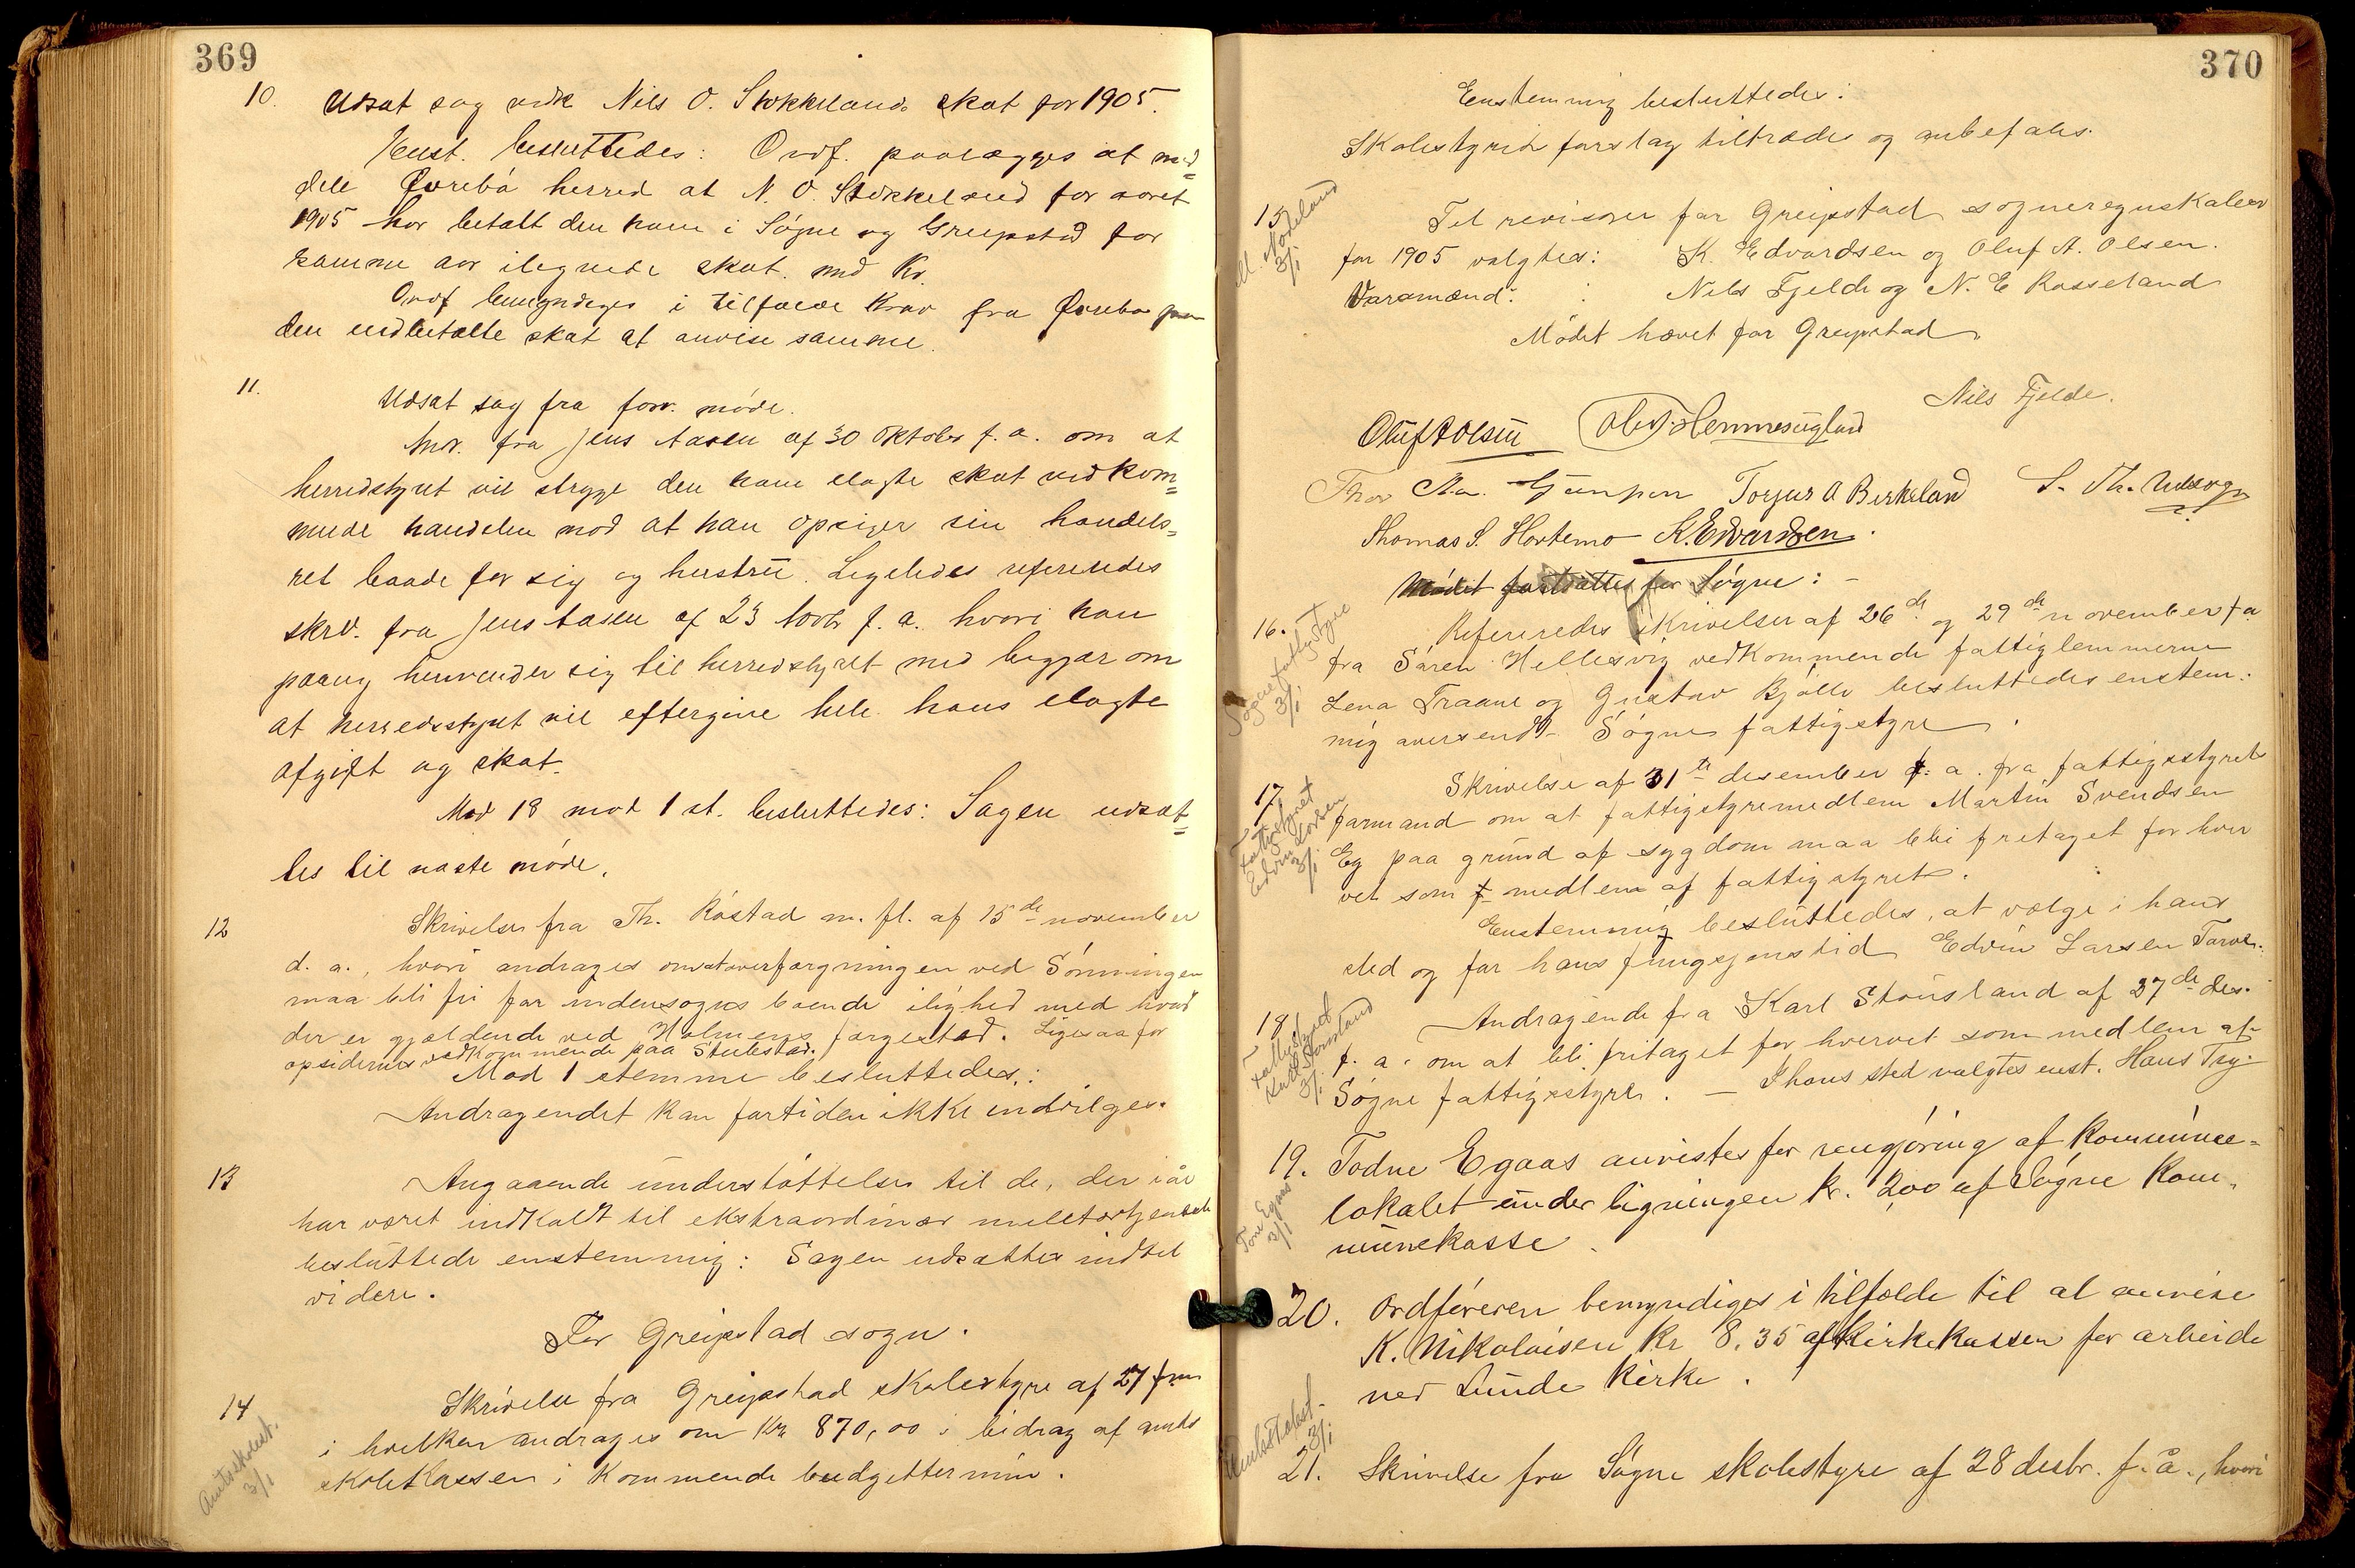 369
10. Udsat sag vedk Nils O. Stokkelands skat for 1905.
Enst. besluttedes: Ordf. paalægges at med=
dele Øvrebó herred at N. O. Stokkeland for aaret
1905 har betalt den ham i Sógne og Greipstad for
samme aar ilignede skat med Kr.
Ordf bemyndiges i tilfælde Krav fra Øvrebo paa
den indbetalte skat at anvise samme.
11.
Udsat sag fra forr. móde.
Andr. fra Jens Aasen af 30 Oktober f. a. om at
herredstyret vil stryge den ham ilagte skat vedkom=
mende handelen mod at han opsiger sin handels=
ret baade for sig og hustru. Ligeledes refereredes
skrv. fra Jens Aasen af 23 Novbr f. a. hvori han
paany henvender sig til herredstyret med begjær om
at herredsstyret vil eftergive hele hans ilagte
afgift og skat.
Mod 18 mod 1 st. besluttedes: Sagen udsæt=
tes til næste móde.
12
Skrivelse fra Th. Róstad m. fl. af 15de november
d. a., hvori andrages om at overfærgningen ved Sónningen
maa bli fri for indensogns boende ilighed med hvad
der er gjældende ved Holmens færgested. Ligesaa for
opsidernes vedkommende paa Stubstad.
Mod 1 stemme besluttedes:
Andragendet kan fortiden ikke indvilges.
13
Angaaende understóttelse til de, der iår
har været indkaldt til ekstraordinær militærtjeneste
besluttede enstemmig: Sagen udsættes indtil
videre.
For Greipstad sogn.
14
Amtsskolest. 3/1
Skrivelse fra Greipstad skolestyre af 27 f.m.
i hvilken andrages om Kr 870,00 i bidrag af amts
skolekassen i kommende budgettermin.
370
Enstemmig besluttedes:
Skolestyrets forslag tiltrædes og anbefales.
15
3/1
Til revisorer for Greipstad sogneregnskaber
for 1905 valgtes: K. Edvardsen og Oluf A. Olsen.
Varamænd: Nils Fjelde og N. E Rosseland
Módet hævet for Greipstad
Nils Fjelde.
Oluf A Olsen Olav Hemmesugland
Thor Aa. Torjus A Birkeland S. Th.
Thomas S. Hortemo K. Edvardsen.
Módet fortsattes for Sógne: -
16.
Sógne fattigstyre 3/1
Refereredes skrivelser af 26de og 29de november f a
fra Sóren Hellesvig vedkommende fattiglemmerne
Lena Traane og Gustav Kjólle besluttedes enstem:
mig oversendt Sógne fattigstyre
17
Fattigstyret
Edvin Larsen 3/1
Skrivelse af 31te desember f. a. fra fattigstyrets
formand om at fattigstyremedlem Martin Svendsen
Eg paa grund af sygdom maa bli fritaget for hver
vet som f medlem af fattigstyret.
Enstemmig besluttedes, at vælge i hans
sted og for hans fungsjonstid Edvin Larsen
18
Fattigstyret
Karl Stousland 3/1
Andragende fra Karl Stousland af 27de des.
f. a. om at bli fritaget for hvervet som medlem af
Sógne fattigstyre. - I hans sted valgtes enst. Hans Try.
19. Todne Egaas anvistes for rengjóring af Kommune=
Tone Egaas 3/1
lokalet under ligningen kr. 2,00 af Sógne Kom=
munekasse.
20. Ordfóreren bemyndiges i tilfælde til at anvise
K. Nikolaisen Kr 8.35 af Kirkekassen for arbeide
ved Lunde Kirke.
Amtsskolest. 3/1
21. Skrivelse fra Sógne skolestyre af 28 desbr. f. å., hvori